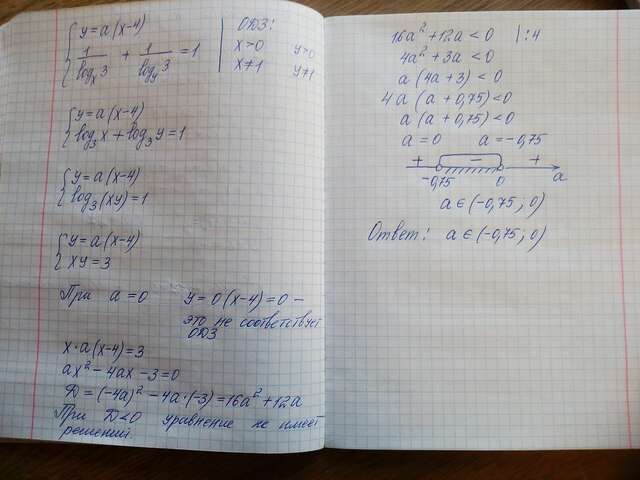 y=a(x-4)
1/logₓ3 + 1/log_y3 = 1
ОДЗ:
x>0 y>0
x≠1 y≠1
y=a(x-4)
log₃x+log₃y=1
y=a(x-4)
log₃(xy)=1
y=a(x-4)
xy=3
При a=0 y=0(x-4)=0 –
это не соответствует
ОДЗ
x·a(x-4)=3
ax²-4ax-3=0
D=(-4a)²-4a·(-3)=16a²+12a
При D<0 уравнение не имеет
решений.
16a²+12a<0 |:4
4a²+3a<0
a(4a+3)<0
4a(a+0,75)<0
a(a+0,75)<0
a=0 a=-0,75
+ - +
-0,75 0 a
a∈(-0,75; 0)
Ответ: a∈(-0,75; 0)